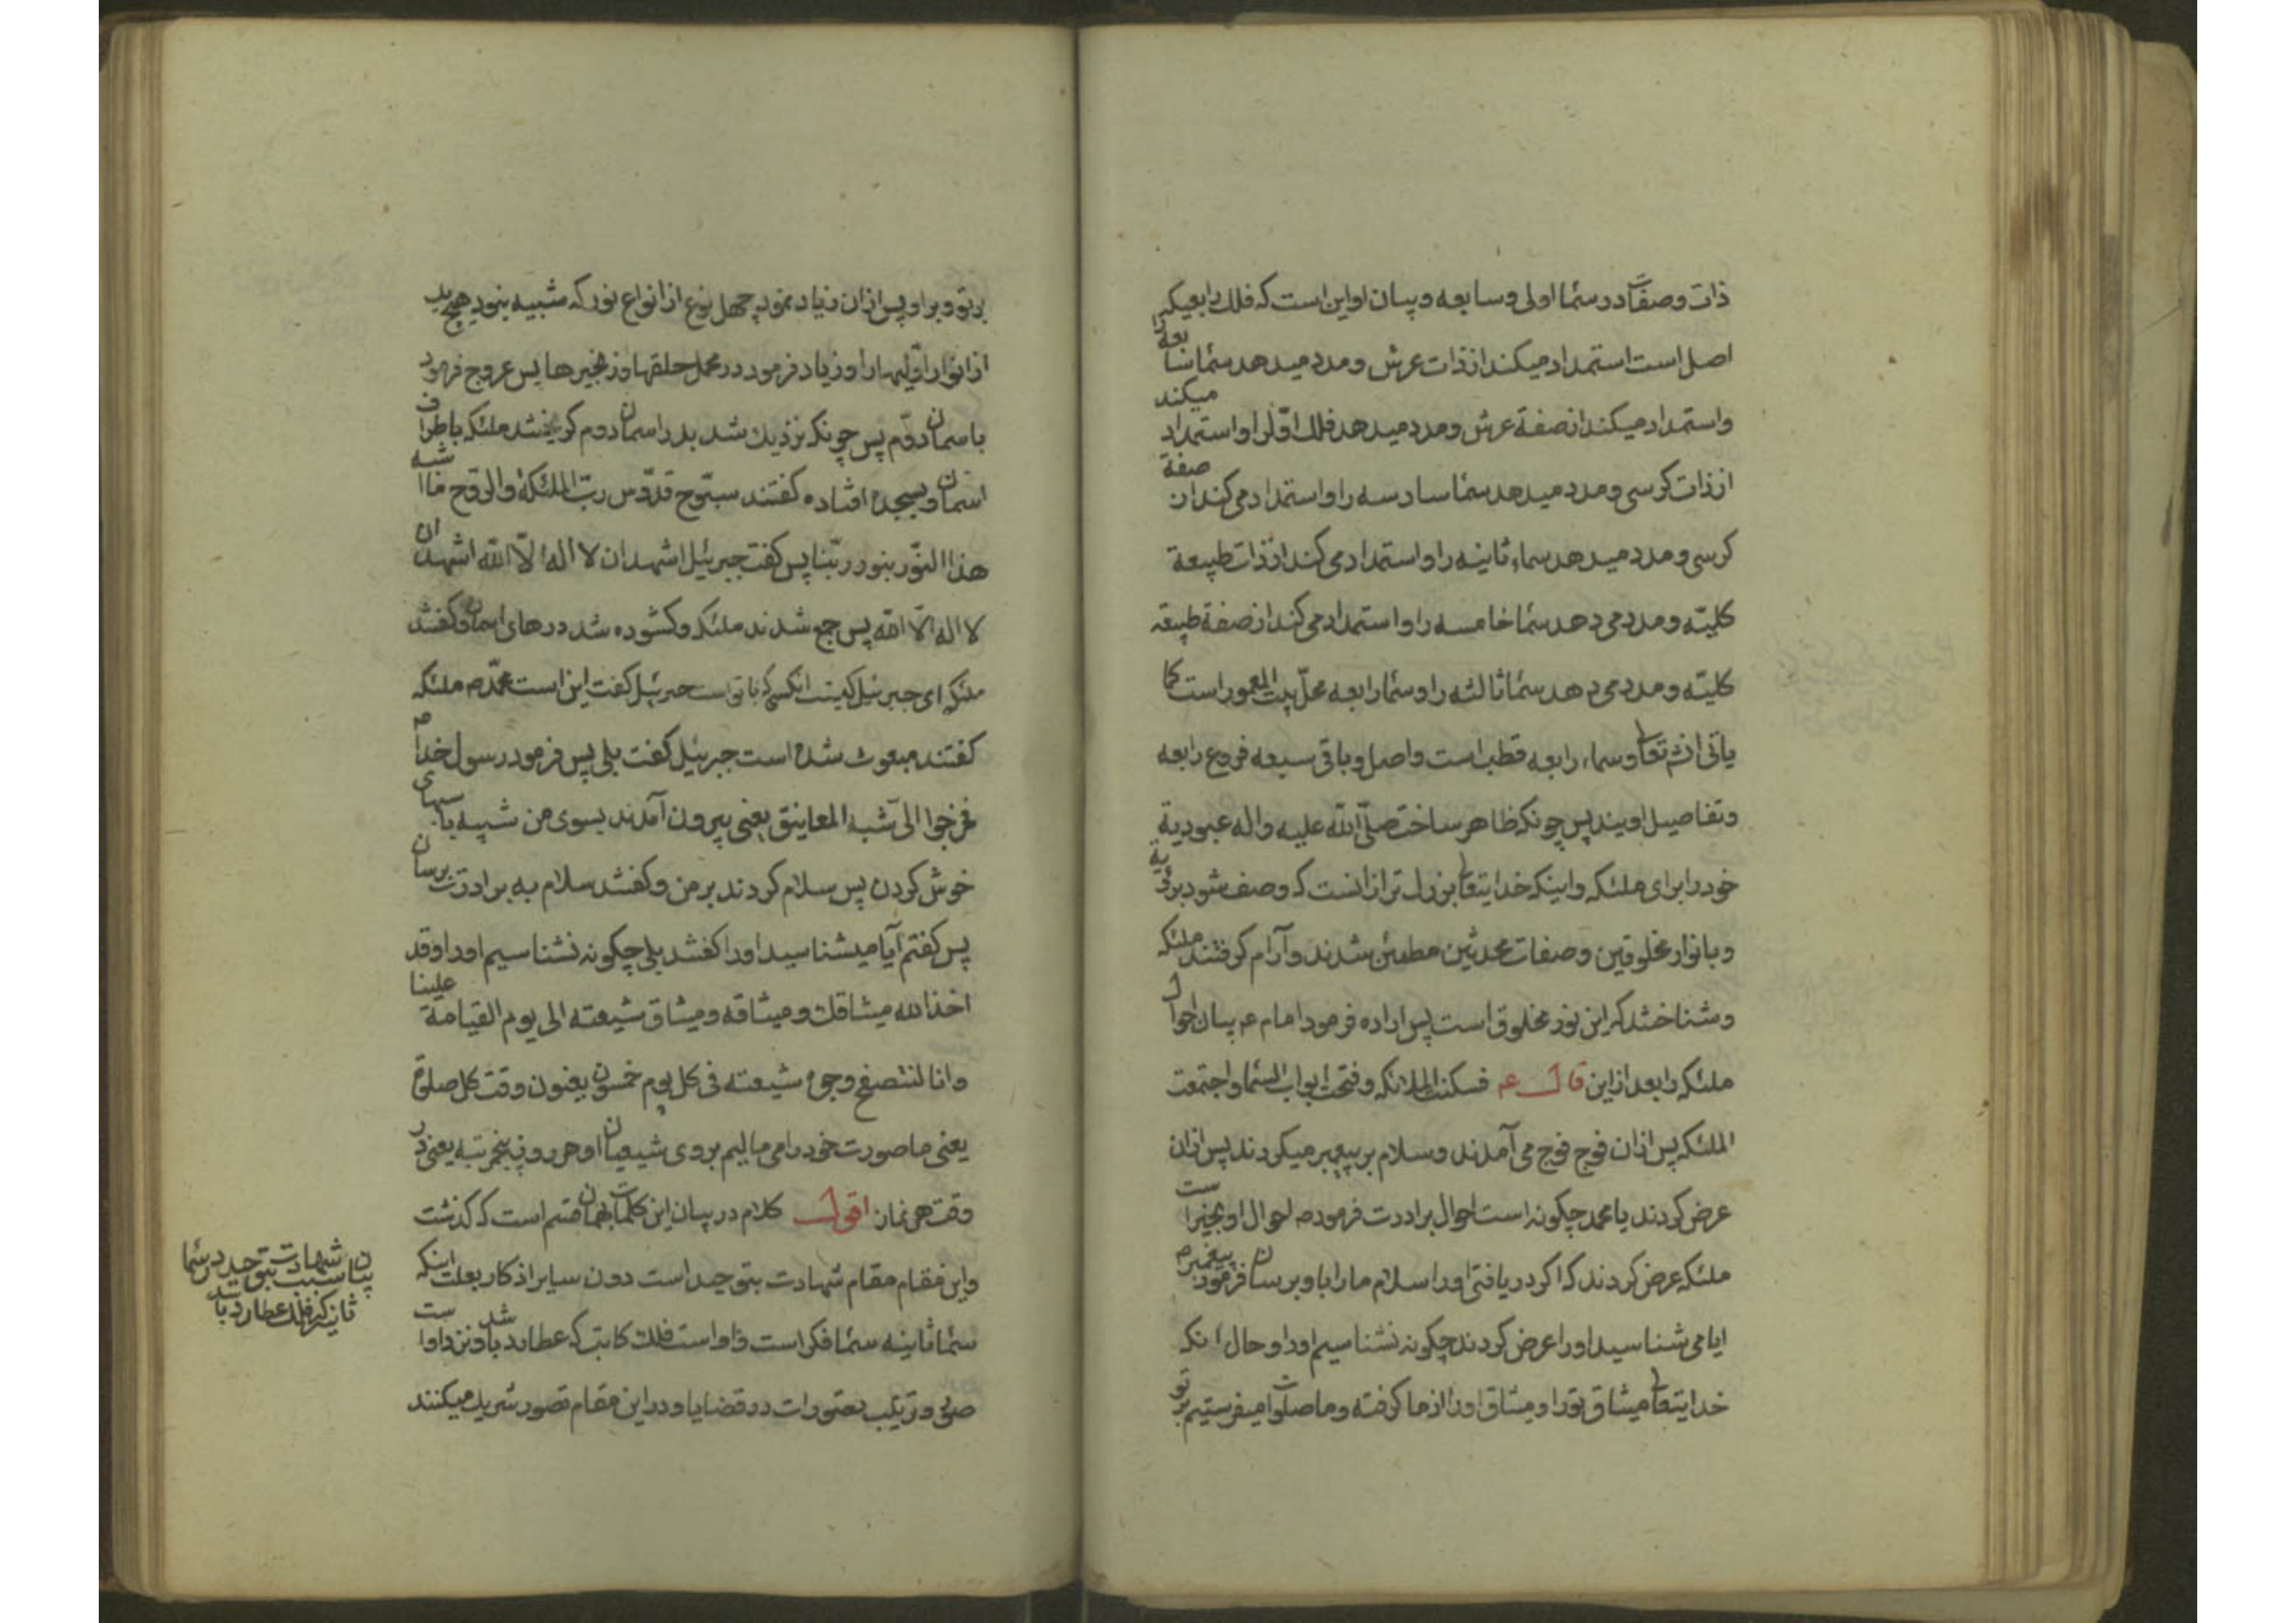 ذات و صفات در سما اولی و سابعه و بیان او این است که فلک رابع یکی
اصل است استمداد میکند از ذات عرش و مدد میدهد سما سابعه را
و استمداد میکند از صفة عرش و مدد میدهد فلک اوّل را و استمداد میکند
از ذات کرسی و مدد میدهد سما سادسه را و استمداد می کند از صفة
کرسی و مدد میدهد سماء ثانیه را و استمداد می کند از ذات طبیعة
کلیّه و مدد می دهد سما خامسه را و استمداد می کند از صفة طبیعة
کلیّه و مدد می دهد سما ثالثه را و سما رابعه محلّ بیت المعمور است کما
یاتی انش تعالی و سماء رابعه قطب است و اصل و باقی سبعه فروع رابعه
و تفاصیل اویند پس چونکه ظاهر ساخت صلّی الله علیه و اله عبودیة
خود را برای ملئکه و اینکه خدایتعالی بزرك تر از انست که وصف شود بربوبیة
و بانوار مخلوقین و صفات محدثین مطمئن شدند و آرام کرفتند ملئکه
و شناختند که این نور مخلوق است پس اراده فرمود امام ع بیان احوال
ملئکه را بعد از این قال ع فسکنت الملائکه و فتحت ابواب السما و اجتمعت
الملئکه پس ازان فوج فوج می آمدند و سلام بر پیغمبر میکردند پس ازان
عرض کردند یا محمد چکونه است احوال برادرت فرمود ص احوال او بخیر است
ملئکه عرض کردند که اکر دریافتی او را سلام ما را باو برسان پیغمبر ص فرمود
ایا می شناسید او را عرض کردند چکونه نشناسیم او را و حال انکه
خدایتعالی میثاق تو را و میثاق او را از ما کرفته و ما صلوات میفرستیم بر تو
بر تو و بر او پس ازان زیاد نمود چهل نوع از انواع نور که شبیه نبود هیچ یک
از انوار اوّلیها را و زیاد فرمود در محمل حلقها و زنجیرها پس عروج فرمود
باسمان دوّم پس چونکه نزدیك شد بدر اسمان دوم کریختند ملئکه باطراف
اسمان و بسجده افتاده کفتند سبّوح قدّوس ربّ الملئکة و الروح ما اشبه
هذا النّور بنور ربّنا پس کفت جبرئیل اشهد ان لا اله الّا الله اشهد ان
لا اله الّا الله پس جمع شدند ملئکه و کشوده شد درهای اسمان و کفتند
ملئکه ای جبرئیل کیست انکسی که با تو است جبرئیل کفت این است محمّد ص ملئکه
کفتند مبعوث شده است جبرئیل کفت بلی پس فرمود رسول خدا ص
فخرجوا الی شبه المعانیق یعنی بیرون آمدند بسوی من شبیه باسبهای
خوش کردن پس سلام کردند بر من و کفتند سلام به برادرت برسان
پس کفتم آیا میشناسید او را کفتند بلی چکونه نشناسیم او را و قد
اخذ الله میثاقك و میثاقه و میثاق شیعته الی یوم القیامة علینا
و انا لنتصفح وجوه شیعته فی کل یوم خمسون یعنون وقت کل صلوة
یعنی ما صورت خود را می مالیم بروی شیعیان او هر روز پنجمرتبه یعنی در
وقت هر نماز اقول کلام در بیان این کلمات بهمان قسم است که کذشت
و این مقام مقام شهادت بتوحید است دون سایر اذکار بعلت اینکه
سما ثانیه سما فکر است و او است فلك کاتب که عطارد باشد و نزد او است
صور و ترکیب تصورات در قضایا و در این مقام تصور شریك میکنند
بیان شهادت بتوحید در سما
ثانیه که فلك عطارد باشد